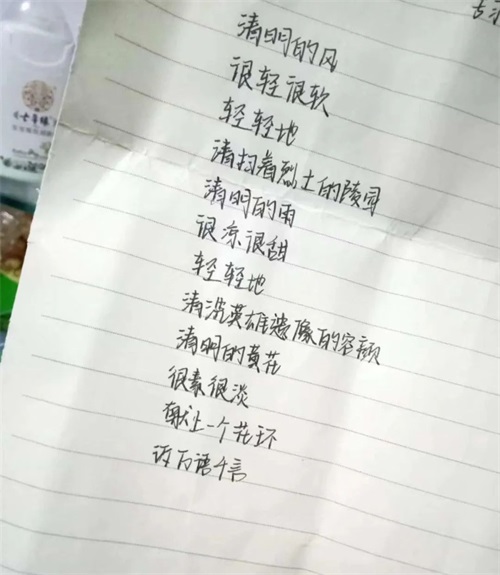 清明的风
很轻很软
轻轻地
清扫着烈士的陵园
清明的雨
很凉很甜
轻轻地
清洗英雄遗像的容颜
清明的黄花
很素很淡
献上一个花环
诉万语千言